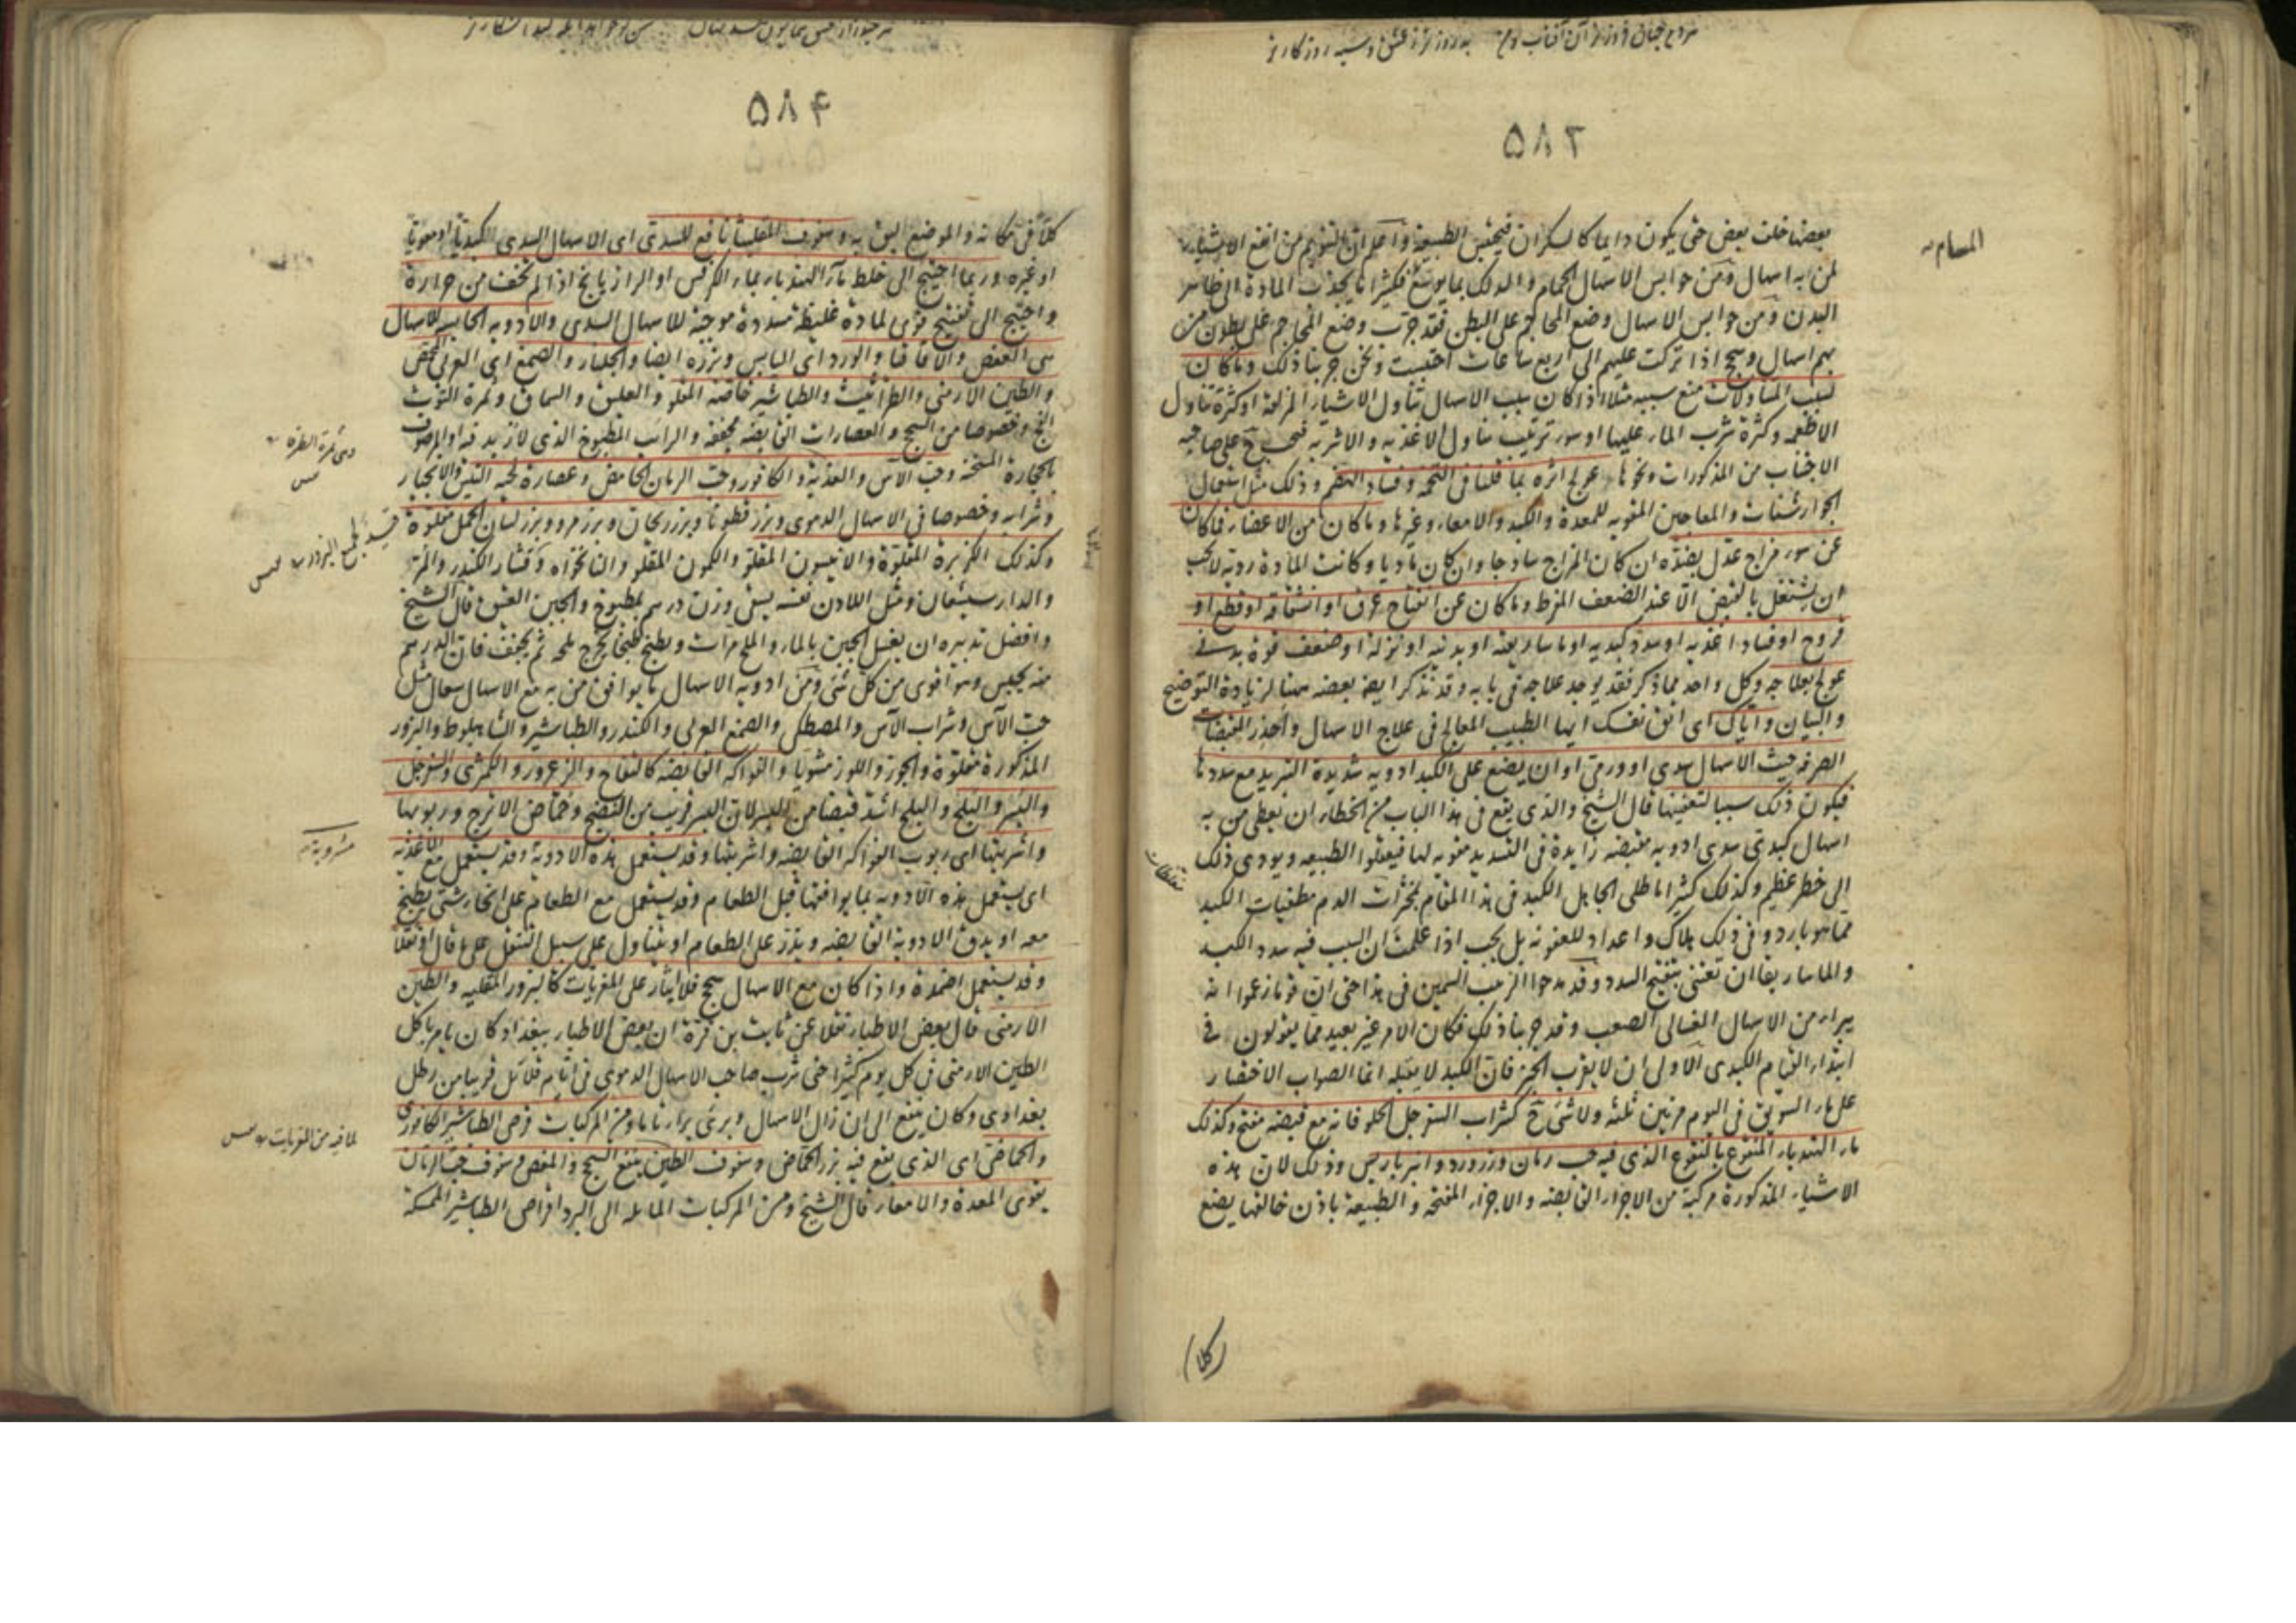 ۵۸۳
بعضها خلف بعض حتى يكون دايما كالسكران فيحتبس الطبيعة واعلم ان التنويم من انفع الاشياء
لمن به اسهال ومن حوابس الاسهال الحمام والدلك بما يوسع فكثيرا ما يجذب المادة الى ظاهر
المسام
البدن ومن حوابس الاسهال وضع المحاجم على البطن فقد جرب وضع المحاجم على بطون من
بهم اسهال وسحج اذا تركت عليهم الى اربع ساعات احتبست ونحن جربنا ذلك وما كان
لسبب المتناولات منع سببه مثلا اذا كان سبب الاسهال تناول الاشياء المزلقة او كثرة تناول
الاطعمه وكثرة شرب الماء عليها او سوء ترتيب تناول الاغذيه والاشربه فيجب ح على صاحبه
الاجتناب من المذكورات ونحوها عولج اثره بما قلنا فى التخمه وفساد الهضم وذلك مثل استعمال
الجوارشنات والمعاجين المقويه للمعدة والكبد والامعاء وغيرها وما كان من الاعضاء فما كان
عن سوء مزاج عدل بضده ان كان المزاج ساذجا وان كان ماديا وكانت المادة رديه لا يجب
ان يشتغل بالقبض الا عند الضعف المفرط وما كان عن انفتاح عرق او انشقاقه او قطع او
قروح او فساد اغذيه او سدد كبديه او ماساريقيه او بدنيه او نزلة او ضعف قوة بدنى
عولج بعلاجه وكل واحد مما ذكر فقد يوجد علاجه فى بابه وقد نذكر ايضا بعضه ههنا لزيادة التوضيح
والبيان واياك اى اتق نفسك ايها الطبيب المعالج فى علاج الاسهال واحذر المقبضات
الصرفه حيث الاسهال سدى او ورمى او ان يضع على الكبد ادويه شديدة التبريد مع سددها
فيكون ذلك سببا لتعفينها قال الشيخ والذى يقع فى هذا الباب من الخطاء ان يعطى من به
اسهال كبدى سدى ادويه مقبضه زايدة فى التسديد مقويه لها فيعقلوا الطبيعه ويودى ذلك
الى خطر عظيم وكذلك كثيرا ما طلى الجاهل الكبد فى هذا المقام بمخثرات الدم مطفيات الكبد
مما هو بارد وفى ذلك هلاك واعداد للعفونه بل يجب اذا علمت ان السبب فيه سدد الكبد
والماساريقا ان تعتنى بتفتيح السدد وقد مدحوا الزبيب السمين فى هذا حتى ان قوما زعموا انه
يبراء من الاسهال الغسالى الصعب وقد جربنا ذلك فكان الامر غير بعيد مما يقولون فى
ابتداء القيام الكبدى الاولى ان لا يقرب الخبز فان الكبد لا يقبله انما الصواب الاقتصار
على ماء السويق فى اليوم مرتين ثلثه ولا شئ ح كشراب السفرجل الحلو فانه مع قبضه مفتح وكذلك
ماء الهندباء المنقوع بالنقوع الذى فيه حب رمان وزرورد وانبرباريس وذلك لان هذه
الاشياء المذكورة مركبة من الاجزاء القابضه والاجزاء المفتحه والطبيعة باذن خالقها يضع
(كلا)
۵۸۴
كلا فى مكانه والموضع اليق به وسفوف المقلياثا نافع للسدى اى الاسهال السدى الكبدى او معويا
او غيره وربما احتيج الى خلط ماء الهندباء بماء الكرفس او الرازيانج اذا لم يخف من حرارة
واحتيج الى تفتيح قوى لمادة غليظة مسددة موجبة للاسهال السدى والادويه الحابسه للاسهال
هى العفص والاقاقيا والورد اى اليابس وبزره ايضا والجلنار والصمغ اى العربى
والطين الارمنى والطراثيث والطباشير خاصه المقلو والعليق والسماق وثمرة التوث
الفج وخصوصا من السحج والعصارات القابضه مجففه والرايب المطبوخ الذى لا زبد فيه او المرصوف
وهى ثمرة الطرفا
بالحجارة المسخنه وحب الآس والكافور وحب الرمان الحامض وعصارة لحيه التيس والانجبار
وشرابه وخصوصا فى الاسهال الدموى وبزر قطونا وبزر ريحان وبزر مرو وبزر لسان الحمل مقلوة
وكذلك الكزبرة المقلوة والانيسون المقلو والكمون المقلو وقشار الكندر والمر
والدارسيشعان ومثل اللادن نفسه يسقى وزن درهم بمطبوخ والجبن العتيق قال الشيخ
وافضل تدبيره ان يغسل الجبن بالماء والملح مرات ويطبخ طبخا يخرج ملحه ثم يجفف فان الدرهم
منه يحبس وهو اقوى من كل شئ ومن ادويه الاسهال ما يوافق من به مع الاسهال سعال مثل
حب الآس وشراب الآس والمصطكى والصمغ العربى والكندر والطباشير والشاهبلوط والبزور
المذكورة مقلوة والجوز واللوز مشويا والفواكه القابضه كالتفاح والزعرور والكمثرى والسفرجل
والبسر والبلح والبلح اشد قبضا من البسر لان البسر قريب من النضج وحماض الاترج وربوبها
واشربتها اى ربوب الفواكه القابضه واشربتها وقد يستعمل هذه الادوية وقد يستعمل مع الاغذيه
مشروبة
اى يستعمل هذه الادويه بما يوافقها قبل الطعام وقد يستعمل مع الطعام على انحاء شتى يطبخ
معه او يدق الادوية القابضه ويذر على الطعام او يتناول على سبيل التنقل على ما قال او نقلا
وقد يستعمل اضمدة واذا كان مع الاسهال سحج فلا ايثار على المغريات كالبزور المقليه والطين
الارمنى قال بعض الاطباء نقلا عن ثابت بن قرة ان بعض الاطباء ببغداد كان يامر باكل
الطين الارمنى فى كل يوم كثيرا حتى شرب صاحب الاسهال الدموى فى ايام قلائل قريبا من رطل
بغدادى وكان ينفع الى ان زال الاسهال وبرئ براء تاما ومن المركبات قرص الطباشير الكافورى
لما فيه من المغريات
والحماضى اى الذى يقع فيه بزر الحماض وسفوف الطين ينفع السحج والمغص وسفوف حب الرمان
يقوى المعدة والامعاء قال الشيخ ومن المركبات المايله الى البرد اقراص الطباشير الممسكة